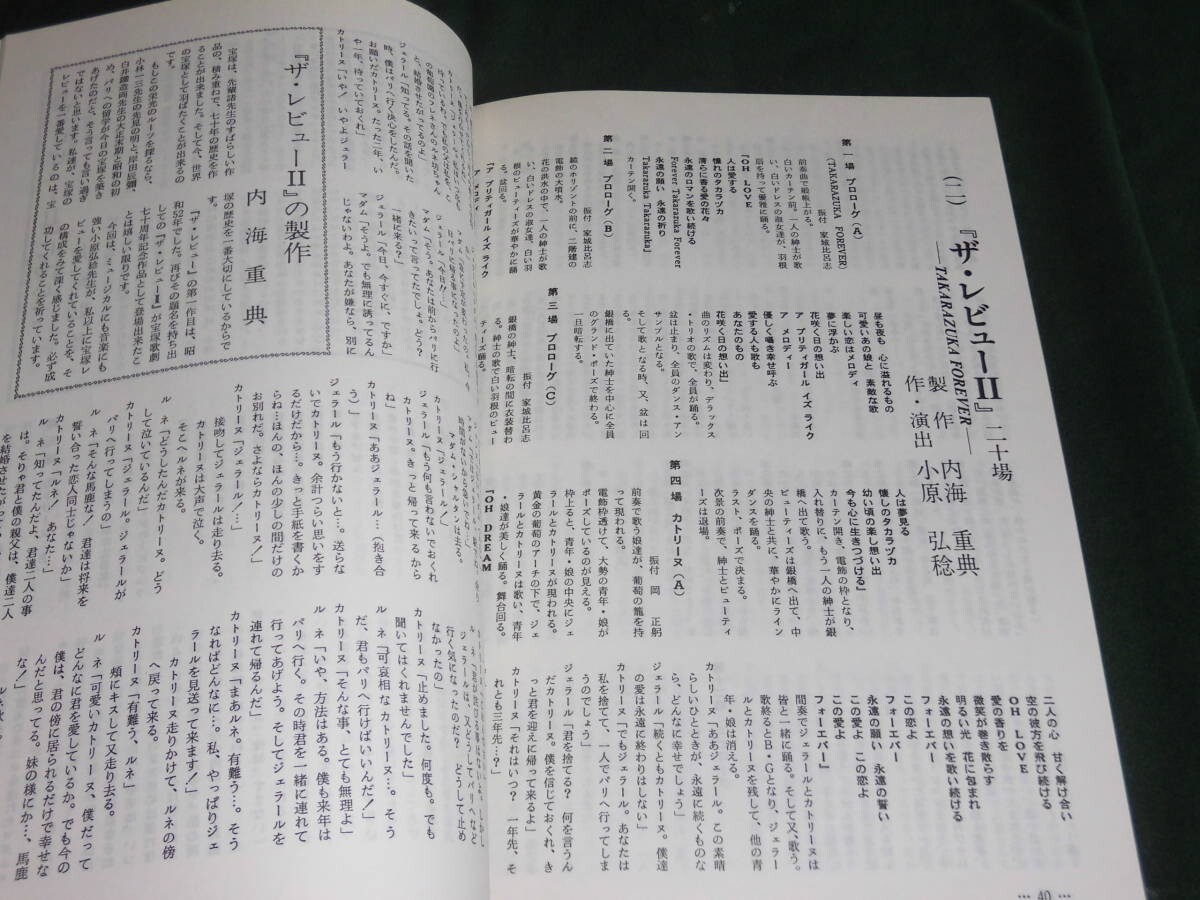 (二)『ザ・レビューⅡ』二十場
—TAKARAZUKA FOREVER—
製作 内海 重典
作・演出 小原 弘稔
第一場 プロローグ(A)
(TAKARAZUKA FOREVER)
振付 家城比呂志
前奏曲で緞帳上がる。
白いカーテン前。一人の紳士が歌
い、白いドレスの淑女達が、羽根
扇を持って優雅に踊る。
『OH LOVE
人は愛する
憧れのタカラヅカ
清らに香る愛の花々
永遠のロマンを歌い続ける
Forever Takarazuka Forever
永遠の願い 永遠の祈り
Takarazuka Takarazuka』
カーテン開く。
第二場 プロローグ(B)
振付 家城比呂志
鏡のホリゾントの前に、二階建の
電飾の大噴水。
花の洪水の中で、一人の紳士が歌
い、白いドレスの淑女達、白い羽
根のビューティーズが華やかに踊
る。盆回る。
『ア プリティガール イズ ライク
ア メロディ
昼も夜も 心に溢れるもの
可愛いあの娘と 素敵な歌
楽しい恋はメロディ
夢に浮かぶ
花咲く日の想い出
ア プリティガール イズ ライク
ア メロディー
優しく囁き幸せ呼ぶ
愛する人も歌も
あなたのもの
花咲く日の想い出』
曲のリズムは変わり、デラックス
・トリオの歌で、全員が踊る。
盆は止まり、全員のダンス・アン
サンブルとなる。
そして歌となる時、又、盆は回
る。
銀橋に出ていた紳士を中心に全員
のグランド・ポーズで終わる。
一旦暗転する。
第三場 プロローグ(C)
振付 家城比呂志
銀橋の紳士、暗転の間に衣装替わ
る。紳士の歌で白い羽根のビュー
ティーズ踊る。
人は夢見る
懐しのタカラヅカ
幼い頃の楽し想い出
今も心に生きつづける』
カーテン開き、電飾の枠となり、
入れ替りに、もう一人の紳士が銀
橋へ出て歌う。
ビューティーズは銀橋へ出て、中
央の紳士と共に、華やかにライン
ダンスを踊る。
ラスト、ポーズで決まる。
次景の前奏で、紳士とビューティ
ーズは退場。
第四場 カトリーヌ(A)
振付 岡 正躬
前奏で歌う娘達が、葡萄の籠を持
って現われる。
電飾枠透けて、大勢の青年・娘が
ポーズしているのが見える。
枠上ると、青年・娘の中央にジェ
ラールとカトリーヌが現われる。
黄金の葡萄のアーチの下で、ジェ
ラールとカトリーヌは歌い、青年
・娘達が美しく踊る。舞台回る。
『OH DREAM
二人の心 甘く解け合い
空の彼方を飛び続ける
OH LOVE
愛の香りを
微笑が巻き散らす
明るい光 花に包まれ
永遠の想いを歌い続ける
フォーエバー
この恋よ
フォーエバー
永遠の願い 永遠の誓い
この愛よ この恋よ
この愛よ
フォーエバー』
間奏でジェラールとカトリーヌは
皆と一緒に踊る。そして又、歌う。
歌終るとB・Gとなり、ジェラー
ルとカトリーヌを残して、他の青
年・娘は消える。
カトリーヌ「ああジェラール。この素晴
らしいひとときが、永遠に続くものな
ら、どんなに幸せでしょう」
ジェラール「続くともカトリーヌ。僕達
の愛は永遠に終わりはしない」
カトリーヌ「でもジェラール。あなたは
私を捨てて、一人でパリへ行ってしま
うのでしょう」
ジェラール「君を捨てる? 何を言うん
だカトリーヌ。僕を信じておくれ、き
っと君を迎えに帰って来るよ」
カトリーヌ「それはいつ? 一年先、そ
れとも三年先…?」
… 40 …
と、結婚させたがってるのよ」
ジェラール「知ってる。その話を聞いた
時、僕はパリへ行く決心をしたんだ。
お願いだカトリーヌ。たった二年、い
や一年、待っていておくれ」
カトリーヌ「いや! いやよジェラー
ジェラール「今日!!」
マダム「そうよ。あなたは前からパリに行
きたいって言ってたでしょ。どう?
一緒に来る?」
ジェラール「今日、今すぐに、ですか」
マダム「そうよ。でも無理に誘ってるん
じゃないわよ。あなたが嫌なら、別に
『ザ・レビューⅡ』の製作
内海重典
宝塚は、先輩諸先生のすばらしい作
品の、積み重ねで、七十年の歴史を作
ることが出来ました。そして今、世界
の宝塚として羽ばたくことが出来るの
です。
もしこの栄光のルーツを探るなら、
小林一三先生の先見の明と、岸田辰彌、
白井鐵造両先生の大正末期と昭和の初
め、パリへの留学が今日の宝塚を築き
あげたのだと、そう言っても言い過ぎ
ではないと思います。私達が、宝塚の
レビューを一番愛しているのは、宝
塚の歴史を一番大切にしているからで
す。
『ザ・レビュー』の第一作目は、昭
和52年でした。再びその題名を持ち出
しての『ザ・レビューⅡ』が宝塚歌劇
七十周年記念作品として登場出来たこ
とは嬉しい限りです。
今回は、ミュージカルにも音楽にも
強い小原弘稔先生が、私以上に宝塚レ
ビューを愛してくれていることを、そ
の構成をみて深く感じました。必ず成
功してくれることを祈っています。
マダム・シャルタンは去る。
カトリーヌ「ジェラール!」
ジェラール「もう何も言わないでおくれ
カトリーヌ。きっと帰って来るから
ね」
カトリーヌ「ああジェラール…(抱き合
う)」
ジェラール「もう行かないと…。送らな
いでカトリーヌ。余計つらい思いをす
るだけだから…。きっと手紙を書くか
らね…ほんの、ほんの少しの間だけの
お別れだ。さよならカトリーヌ!」
接吻してジェラールは走り去る。
カトリーヌ「ジェラール!…」
カトリーヌは大声で泣く。
そこへルネが来る。
ルネ「どうしたんだカトリーヌ。どう
して泣いているんだ」
カトリーヌ「ジェラール。ジェラールが
パリへ行ってしまうの」
ルネ「そんな馬鹿な! 君達は将来を
誓い合った恋人同士じゃないか」
カトリーヌ「ルネ! あなた…」
ルネ「知ってたんだよ、君達二人の事
は。そりゃ君と僕の親父は、僕達二人
を結婚させたがって
行く気になったのだ? どうして止め
なかったの」
カトリーヌ「止めました。何度も。でも
聞いてはくれませんでした」
ルネ「可哀相なカトリーヌ…。そう
だ、君もパリへ行けばいいんだ!」
カトリーヌ「そんな事、とても無理よ」
ルネ「いや、方法はある。僕も来年は
パリへ行く。その時君を一緒に連れて
行ってあげよう。そしてジェラールを
連れて帰るんだ」
カトリーヌ「まあルネ。有難う…。そう
なればどんなに…。私、やっぱりジェ
ラールを見送って来ます!」
カトリーヌ走りかけて、ルネの傍
へ戻って来る。
カトリーヌ「有難う、ルネ」
頬にキスして又走り去る。
ルネ「可愛いカトリーヌ、僕だって
どんなに君を愛しているか。でも今の
僕は、君の傍に居られるだけで幸せな
んだと思ってる。妹の様にか…、馬鹿
な!」